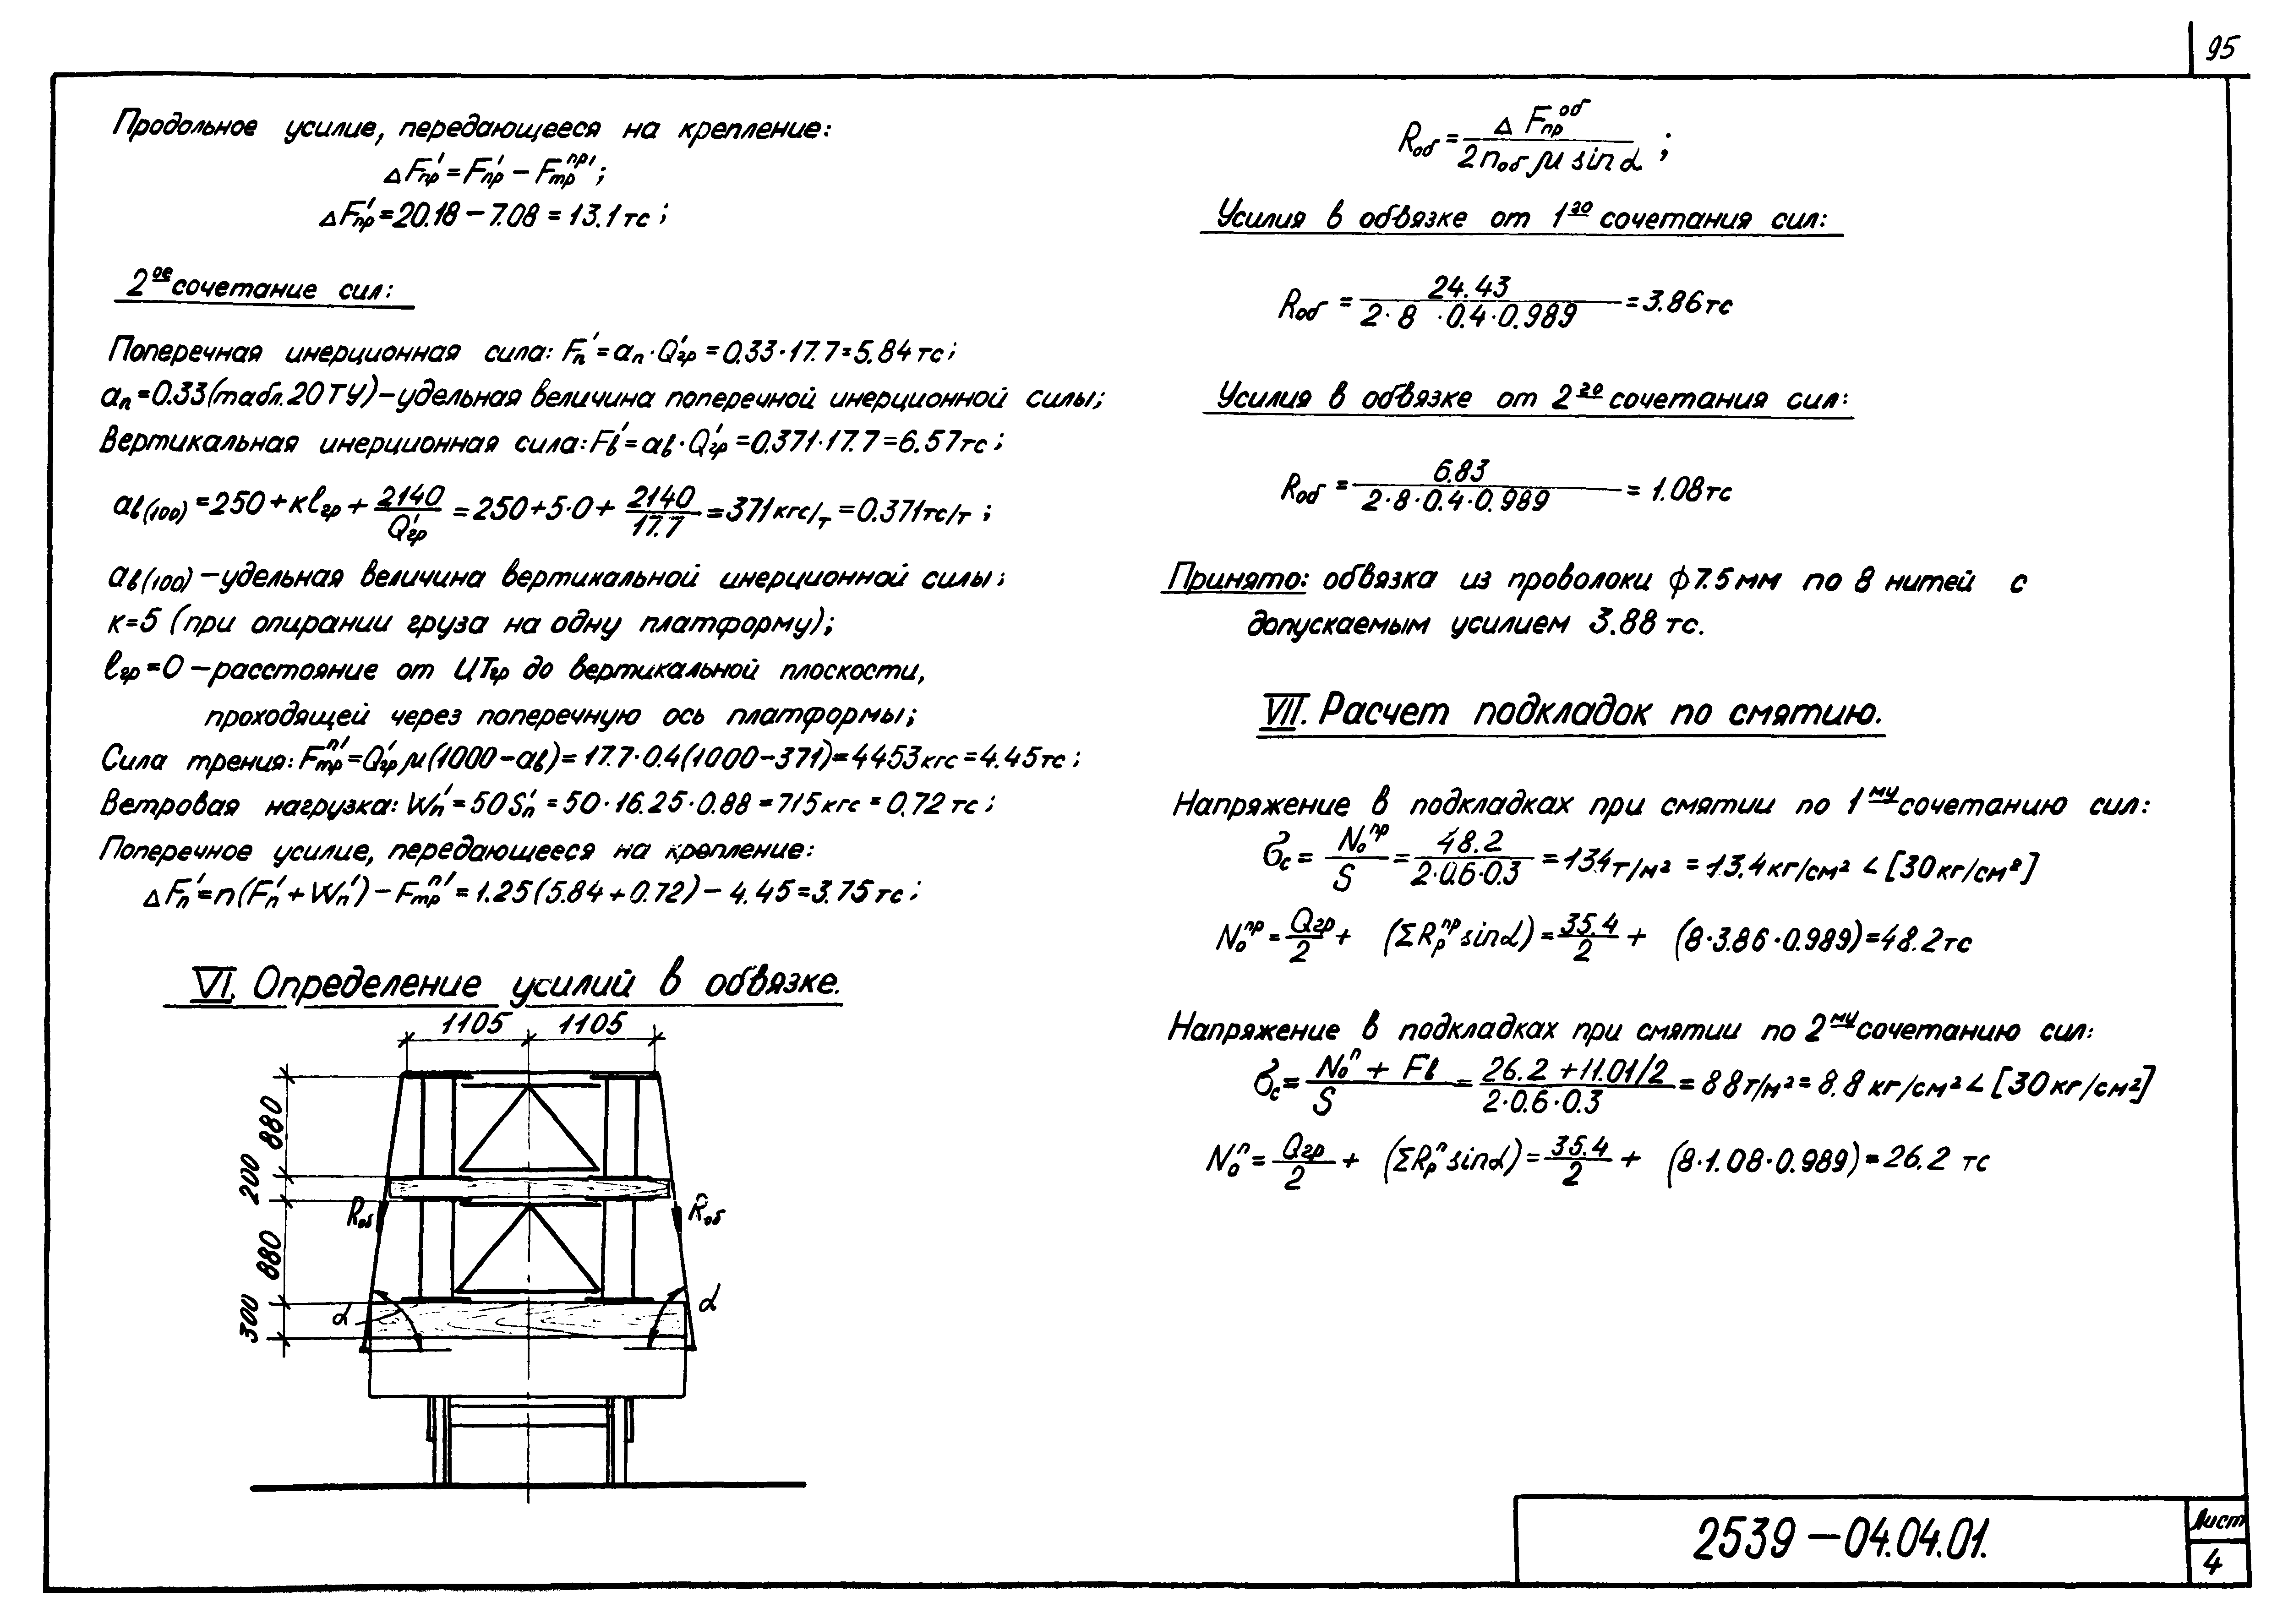 95
Продольное усилие, передающееся на крепление:
ΔFпр' = Fпр' − Fтр^пр';
ΔFпр' = 20.18 − 7.08 = 13.1 тс;
2ое сочетание сил:
Поперечная инерционная сила: Fп' = aп · Q'гр = 0.33 · 17.7 = 5.84 тс;
aп = 0.33 (табл. 20 ТУ) − удельная величина поперечной инерционной силы;
Вертикальная инерционная сила: Fв' = aв · Q'гр = 0.371 · 17.7 = 6.57 тс;
aв(100) = 250 + кlгр + 2140/Q'гр = 250 + 5·0 + 2140/17.7 = 371 кгс/т = 0.371 тс/т;
aв(100) − удельная величина вертикальной инерционной силы;
к=5 (при опирании груза на одну платформу);
lгр = 0 − расстояние от ЦТгр до вертикальной плоскости,
проходящей через поперечную ось платформы;
Сила трения: Fтр^п' = Q'гр μ(1000 − aв) = 17.7 · 0.4 (1000 − 371) = 4453 кгс = 4.45 тс;
Ветровая нагрузка: Wп' = 50 Sп' = 50 · 16.25 · 0.88 = 715 кгс = 0.72 тс;
Поперечное усилие, передающееся на крепление:
ΔFп' = n(Fп' + Wп') − Fтр^п' = 1.25 (5.84 + 0.72) − 4.45 = 3.75 тс;
VI. Определение усилий в обвязке.
1105 1105
880
200
Rоб Rоб
880
300
α α
Rоб = ΔFпр^об / 2nоб μ sin α ;
Усилия в обвязке от 1го сочетания сил:
Rоб = 24.43 / 2·8 ·0.4·0.989 = 3.86 тс
Усилия в обвязке от 2го сочетания сил:
Rоб = 6.83 / 2·8·0.4·0.989 = 1.08 тс
Принято: обвязка из проволоки ф7.5 мм по 8 нитей с
допускаемым усилием 3.88 тс.
VII. Расчет подкладок по смятию.
Напряжение в подкладках при смятии по 1му сочетанию сил:
σс = N₀^пр / S = 48.2 / 2·0.6·0.3 = 134 т/м² = 13.4 кг/см² < [30 кг/см²]
N₀^пр = Qгр/2 + (ΣRр^пр sin α) = 35.4/2 + (8·3.86·0.989) = 48.2 тс
Напряжение в подкладках при смятии по 2му сочетанию сил:
σс = N₀^п + Fв / S = 26.2 + 11.01/2 / 2·0.6·0.3 = 88 т/м² = 8.8 кг/см² < [30 кг/см²]
N₀^п = Qгр/2 + (ΣRр^п sin α) = 35.4/2 + (8·1.08·0.989) = 26.2 тс
2539 − 04.04.01.
Лист
4